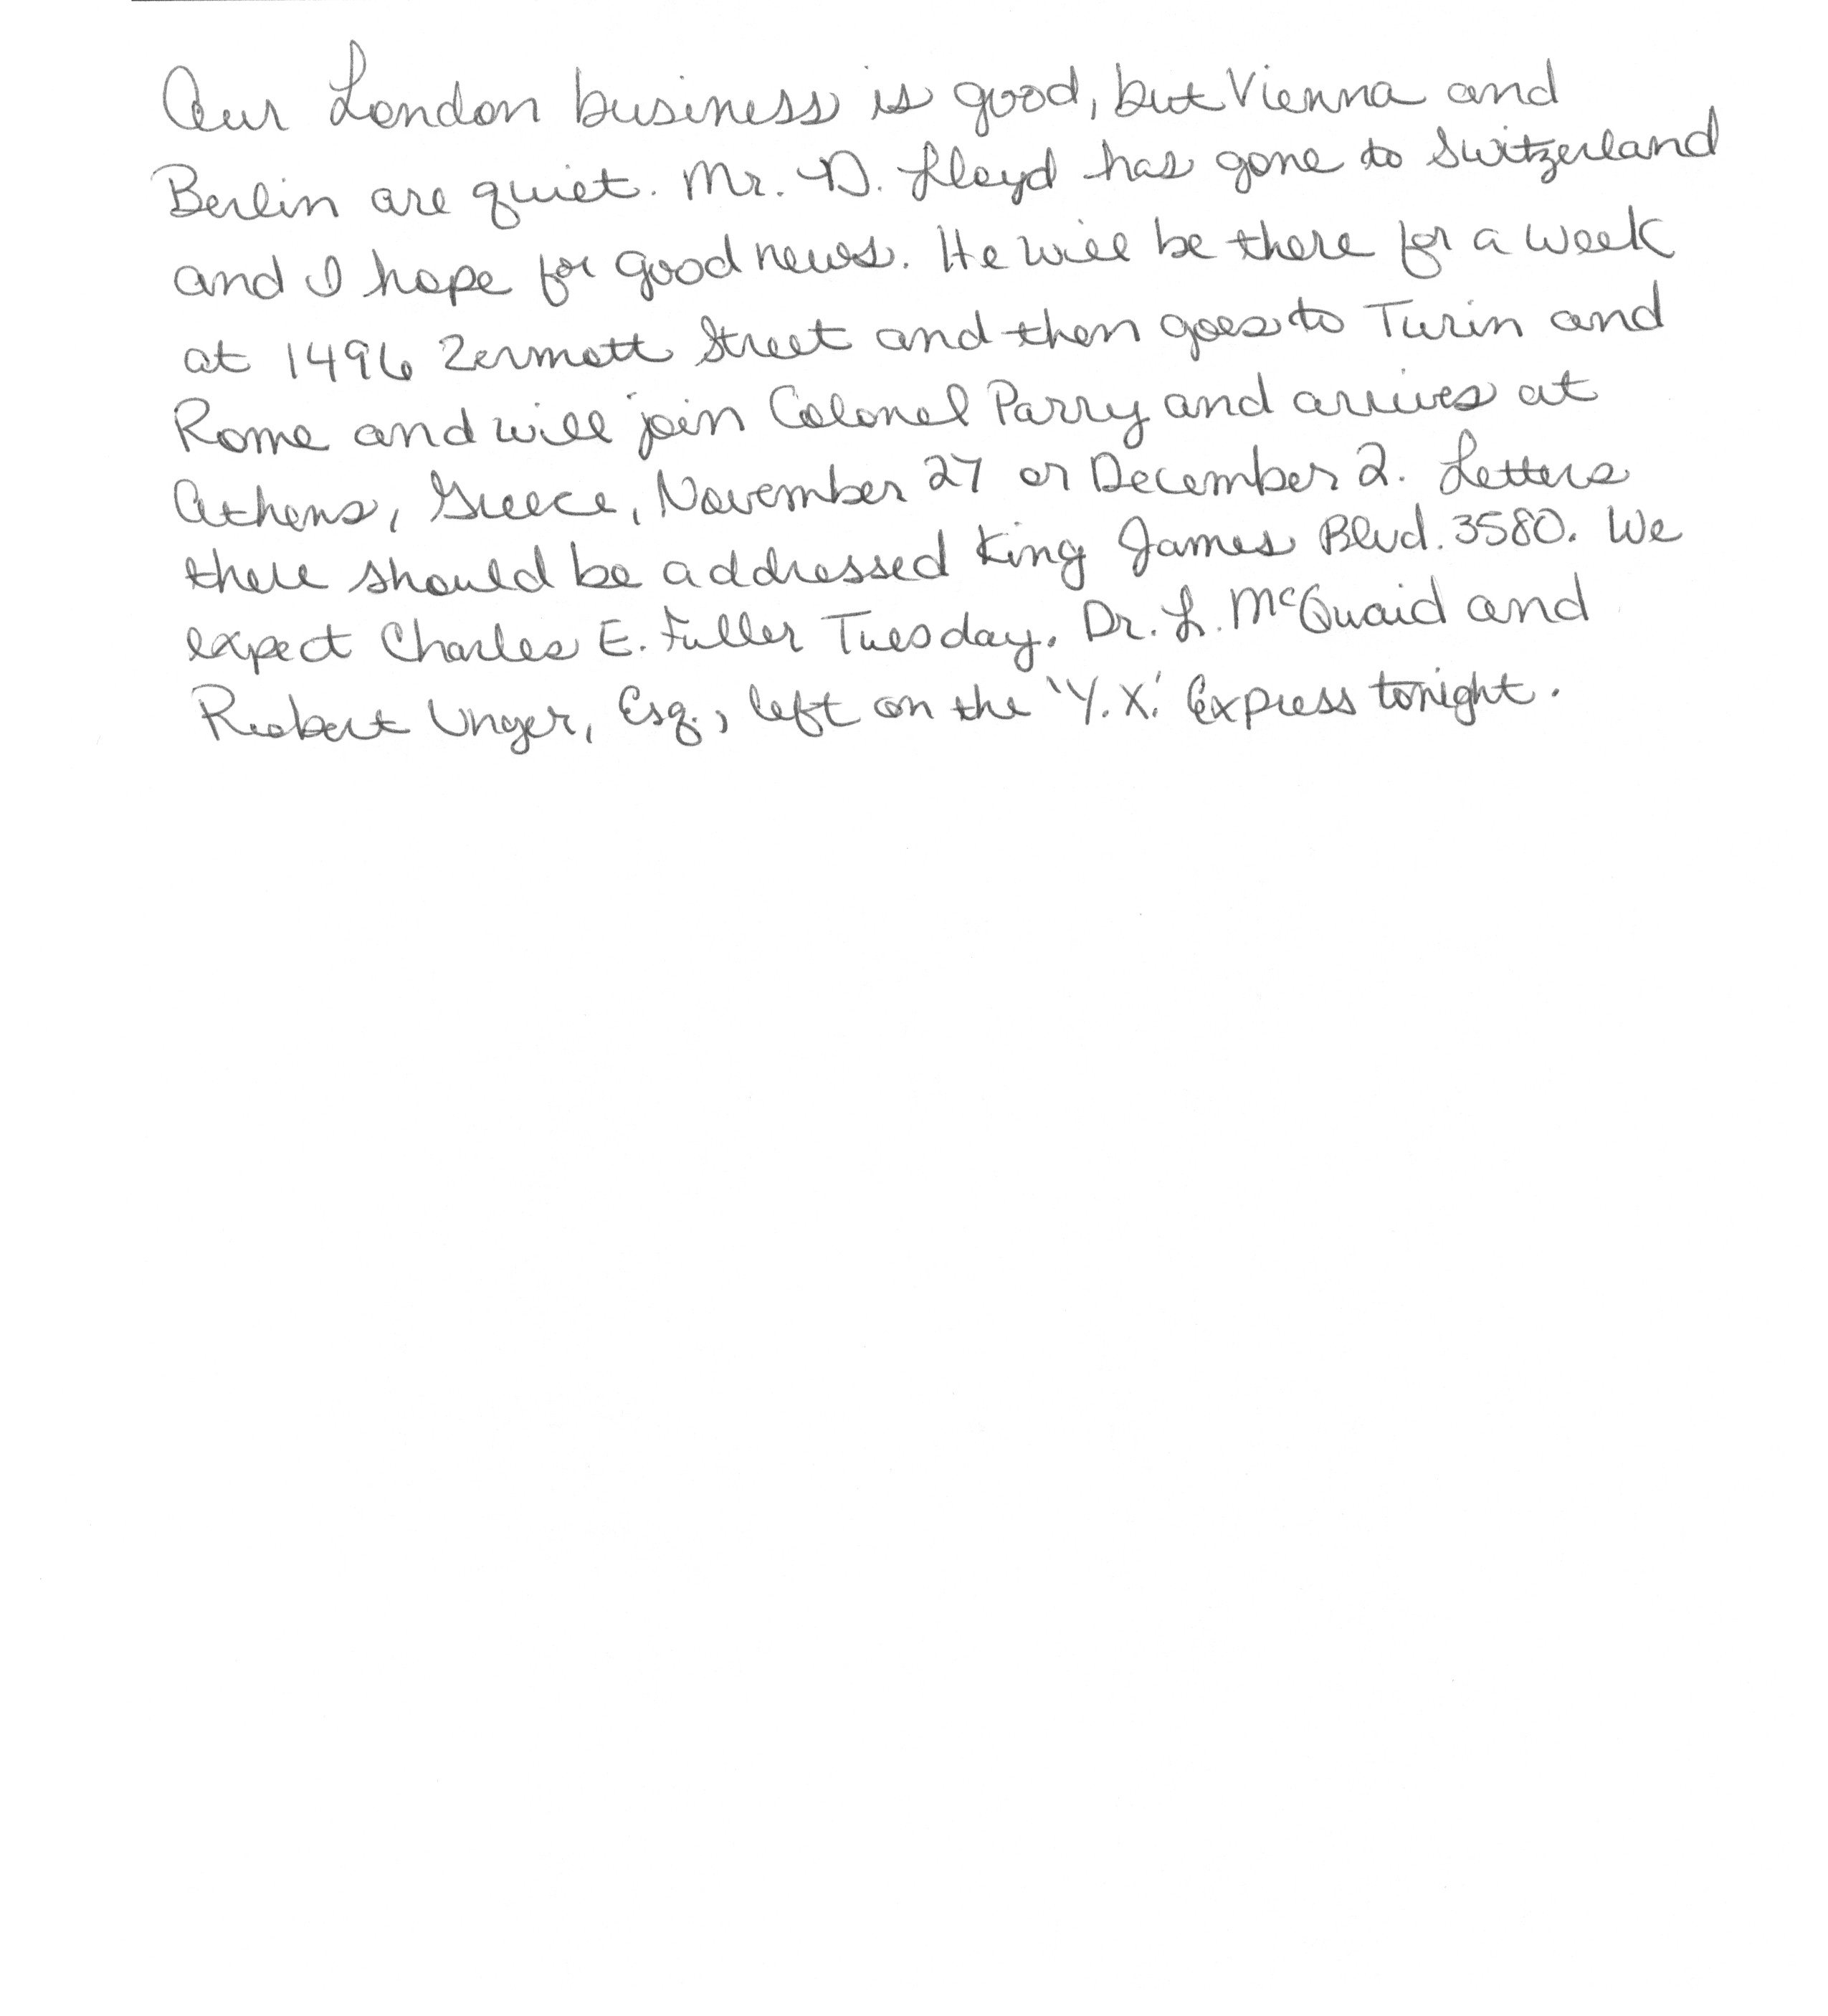 Our London business is good, but Vienna and
Berlin are quiet. Mr. D. Lloyd has gone to Switzerland
and I hope for good news. He will be there for a week
at 1496 Zermott Street and then goes to Turin and
Rome and will join Colonel Parry and arrives at
Athens, Greece, November 27 or December 2. Letters
there should be addressed King James Blvd. 3580. We
expect Charles E. Fuller Tuesday. Dr. L. McQuaid and
Robert Unger, Esq., left on the 'Y.X.' Express tonight.